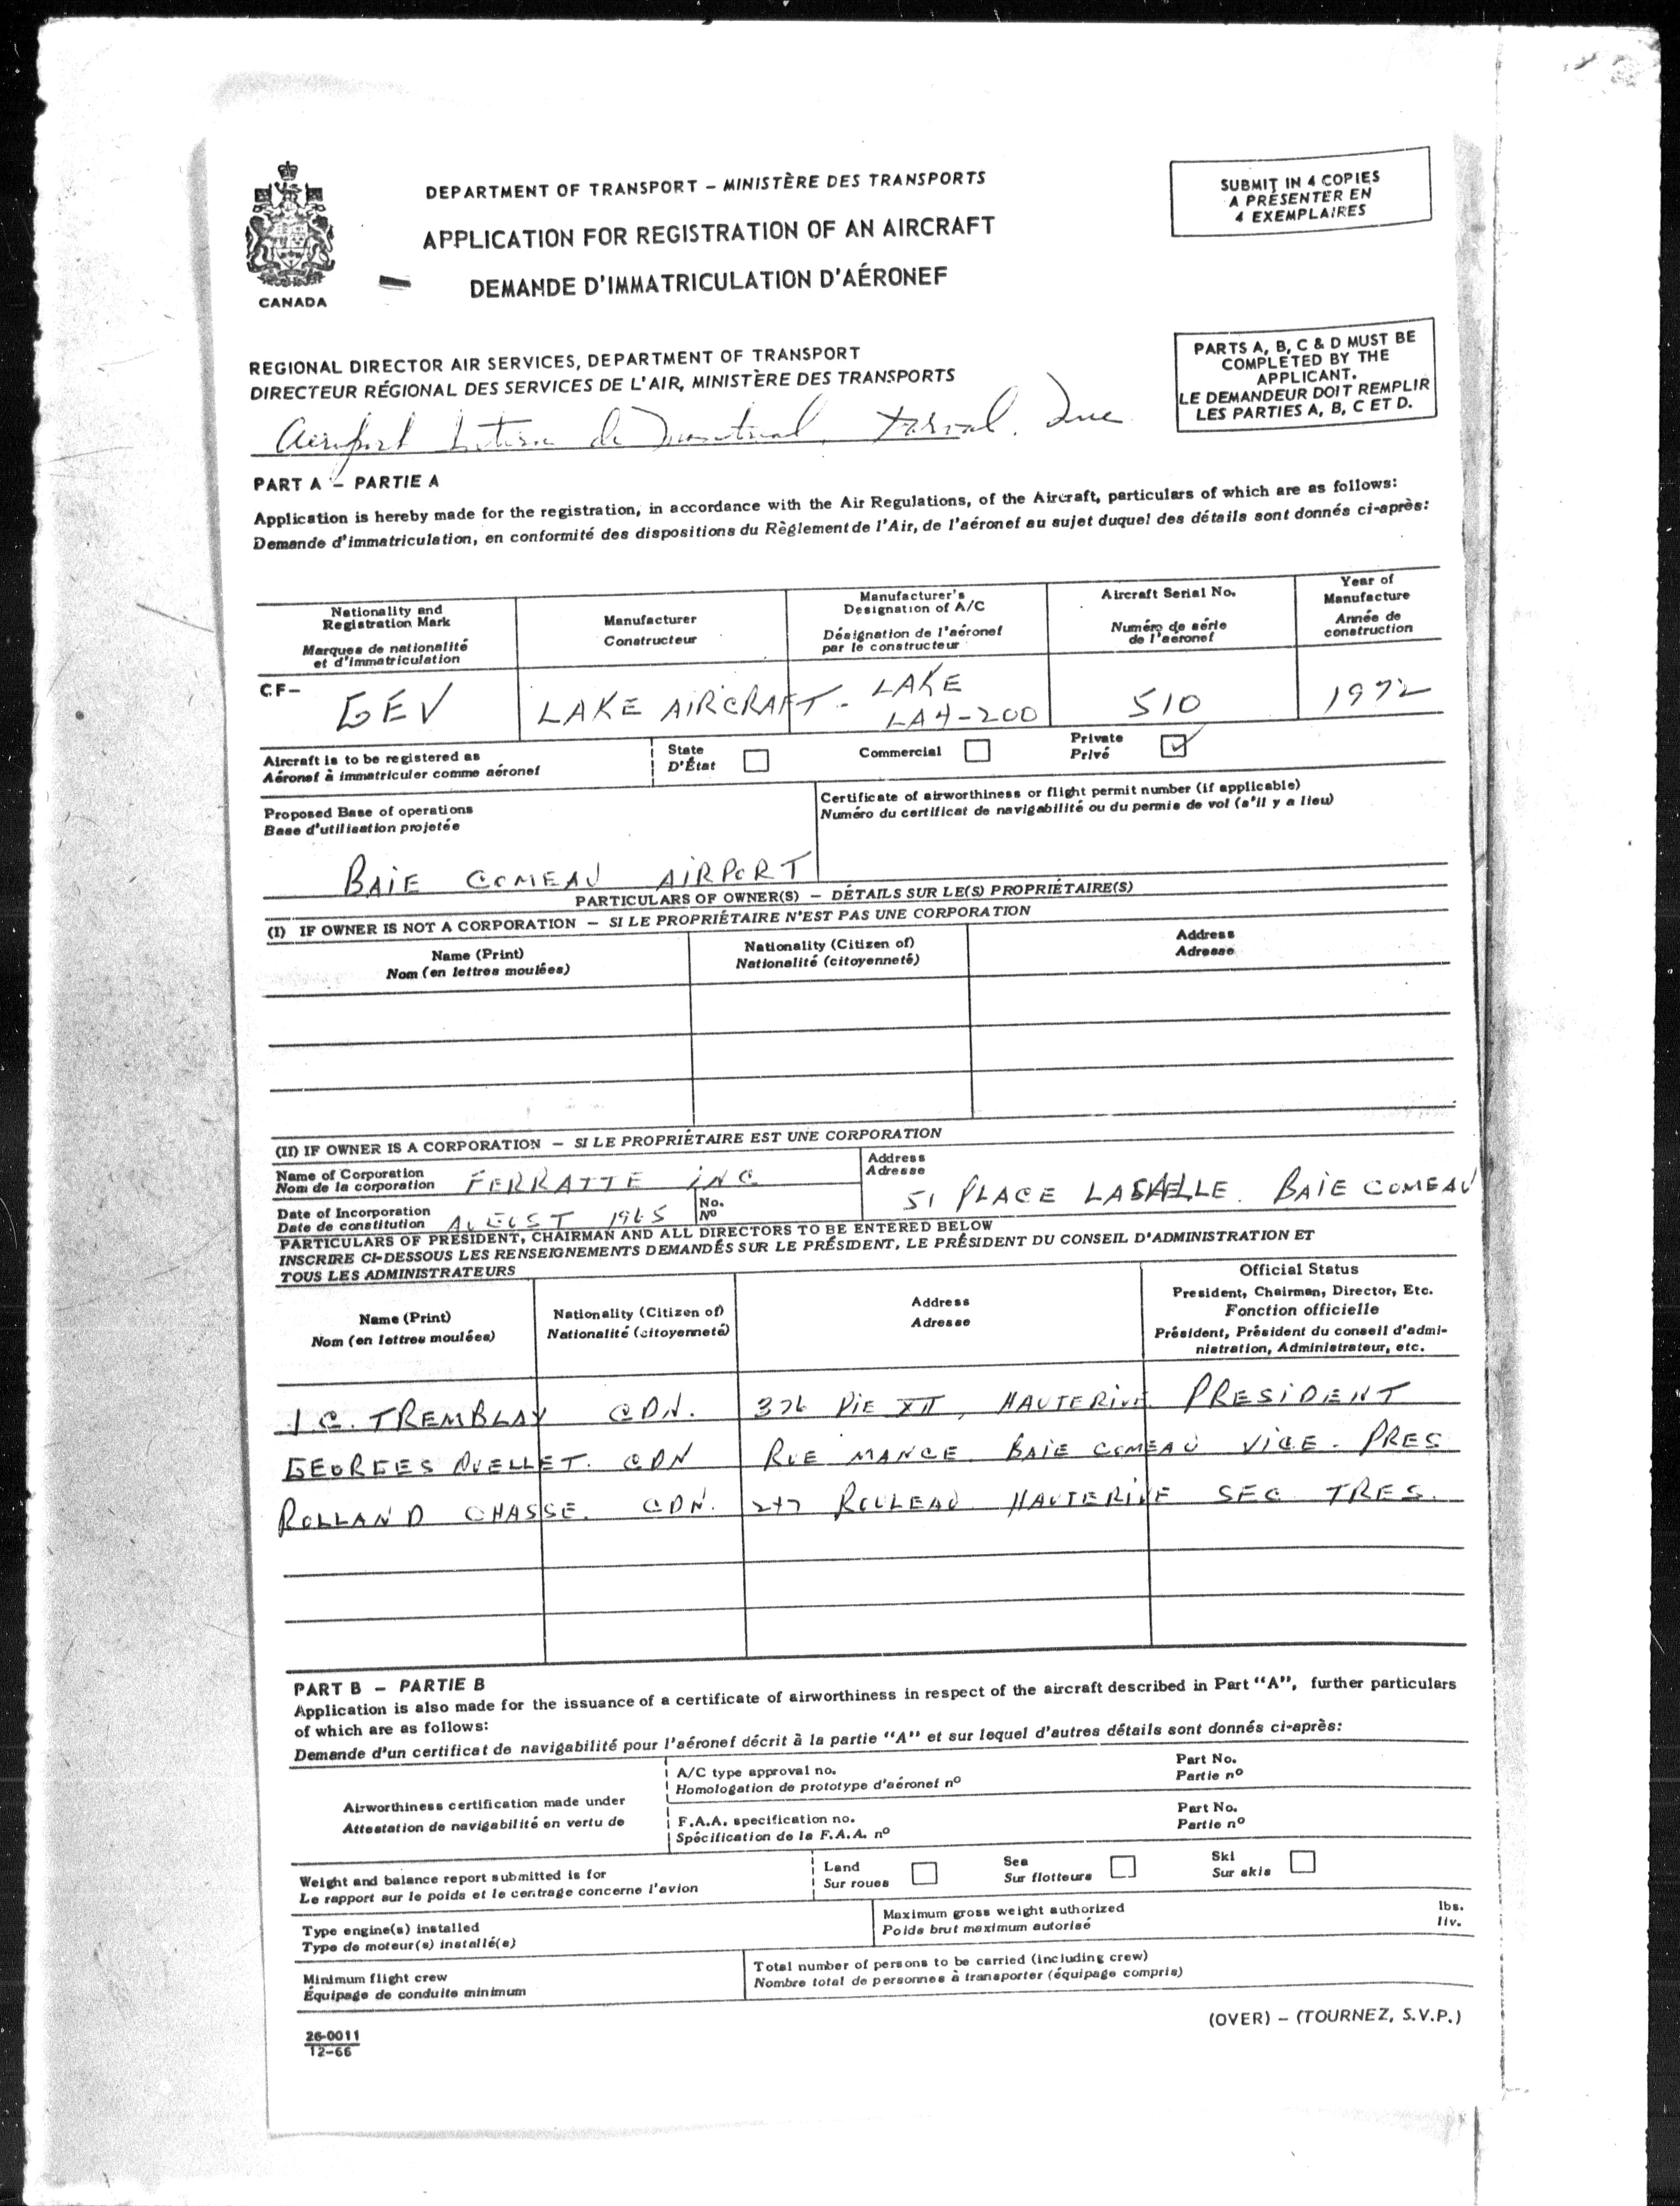 DEPARTMENT OF TRANSPORT – MINISTÈRE DES TRANSPORTS
APPLICATION FOR REGISTRATION OF AN AIRCRAFT
DEMANDE D'IMMATRICULATION D'AÉRONEF
CANADA
SUBMIT IN 4 COPIES
A PRÉSENTER EN
4 EXEMPLAIRES
REGIONAL DIRECTOR AIR SERVICES, DEPARTMENT OF TRANSPORT
DIRECTEUR RÉGIONAL DES SERVICES DE L'AIR, MINISTÈRE DES TRANSPORTS
PARTS A, B, C & D MUST BE
COMPLETED BY THE
APPLICANT.
LE DEMANDEUR DOIT REMPLIR
LES PARTIES A, B, C ET D.
Aeroport de Dorval. Que
PART A – PARTIE A
Application is hereby made for the registration, in accordance with the Air Regulations, of the Aircraft, particulars of which are as follows:
Demande d'immatriculation, en conformité des dispositions du Règlement de l'Air, de l'aéronef au sujet duquel des détails sont donnés ci-après:
Nationality and
Registration Mark
Marques de nationalité
et d'immatriculation
Manufacturer
Constructeur
Manufacturer's
Designation of A/C
Désignation de l'aéronef
par le constructeur
Aircraft Serial No.
Numéro de série
de l'aéronef
Year of
Manufacture
Année de
construction
CF– GEV
LAKE AIRCRAFT -
LAKE
LA4-200
510
1972
Aircraft is to be registered as
Aéronef à immatriculer comme aéronef
State
D'État
Commercial
Private
Privé
Proposed Base of operations
Base d'utilisation projetée
BAIE COMEAU AIRPORT
Certificate of airworthiness or flight permit number (if applicable)
Numéro du certificat de navigabilité ou du permis de vol (s'il y a lieu)
PARTICULARS OF OWNER(S) – DÉTAILS SUR LE(S) PROPRIÉTAIRE(S)
(I) IF OWNER IS NOT A CORPORATION – SI LE PROPRIÉTAIRE N'EST PAS UNE CORPORATION
Name (Print)
Nom (en lettres moulées)
Nationality (Citizen of)
Nationalité (citoyenneté)
Address
Adresse
(II) IF OWNER IS A CORPORATION – SI LE PROPRIÉTAIRE EST UNE CORPORATION
Name of Corporation
Nom de la corporation
FERRATTE INC
Address
Adresse
51 PLACE LASALLE. BAIE COMEAU
Date of Incorporation
Date de constitution
1965
No.
Nº
PARTICULARS OF PRESIDENT, CHAIRMAN AND ALL DIRECTORS TO BE ENTERED BELOW
INSCRIRE CI-DESSOUS LES RENSEIGNEMENTS DEMANDÉS SUR LE PRÉSIDENT, LE PRÉSIDENT DU CONSEIL D'ADMINISTRATION ET
TOUS LES ADMINISTRATEURS
Name (Print)
Nom (en lettres moulées)
Nationality (Citizen of)
Nationalité (citoyenneté)
Address
Adresse
Official Status
President, Chairman, Director, Etc.
Fonction officielle
Président, Président du conseil d'admi-
nistration, Administrateur, etc.
J.C. TREMBLAY CDN. 376 PIE XII, HAUTERIVE PRESIDENT
GEORGES OUELLET. CDN RUE MANCE BAIE COMEAU VICE-PRES
ROLLAND CHASSE. CDN. 247 ROULEAU HAUTERIVE SEC TRES.
PART B – PARTIE B
Application is also made for the issuance of a certificate of airworthiness in respect of the aircraft described in Part "A", further particulars
of which are as follows:
Demande d'un certificat de navigabilité pour l'aéronef décrit à la partie "A" et sur lequel d'autres détails sont donnés ci-après:
Airworthiness certification made under
Attestation de navigabilité en vertu de
A/C type approval no.
Homologation de prototype d'aéronef nº
Part No.
Partie nº
F.A.A. specification no.
Spécification de la F.A.A. nº
Part No.
Partie nº
Weight and balance report submitted is for
Le rapport sur le poids et le centrage concerne l'avion
Land
Sur roues
Sea
Sur flotteurs
Ski
Sur skis
Type engine(s) installed
Type de moteur(s) installé(s)
Maximum gross weight authorized
Poids brut maximum autorisé
lbs.
liv.
Minimum flight crew
Équipage de conduite minimum
Total number of persons to be carried (including crew)
Nombre total de personnes à transporter (équipage compris)
(OVER) – (TOURNEZ, S.V.P.)
26-0011
12-66